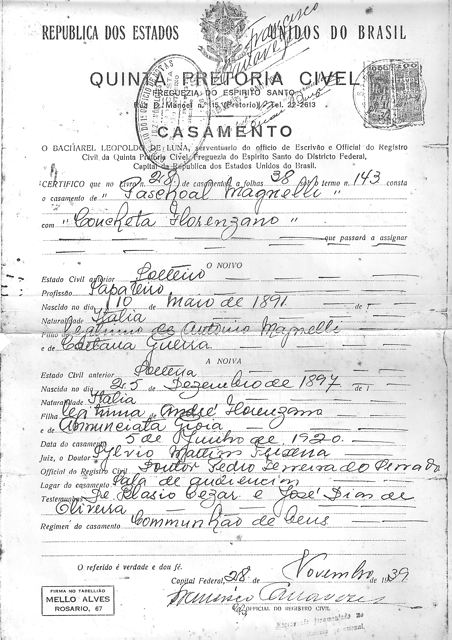 REPUBLICA DOS ESTADOS UNIDOS DO BRASIL
Francisco
QUINTA PRETORIA CIVEL
FREGUEZIA DO ESPIRITO SANTO
Rua D. Manoel n. 15 (Pretorio) Tel. 22-2613
CASAMENTO
O BACHAREL LEOPOLDO DE LUNA, serventuario do officio de Escrivão e Official do Registro
Civil da Quinta Pretoria Civel, Freguezia do Espirito Santo do Districto Federal,
Capital da Republica dos Estados Unidos do Brasil.
CERTIFICO que no Livro n. 28 de casamentos a folhas 38 sob o termo n. 143 consta
o casamento de "Paschoal Magnelli"
com "Concheta Florenzano"
que passará a assignar
O NOIVO
Estado Civil anterior Solteiro
Profissão Sapateiro
Nascido no dia 10 de Maio de 1891
Naturalidade Italia
Filho legitimo de Antonio Magnelli
e de Caetana Guerra
A NOIVA
Estado Civil anterior Solteira
Nascida no dia 25 Dezembro de 1897
Naturalidade Italia
Filha legitima de André Florenzano
e de Annunciata Gioia
Data do casamento 5 de Junho de 1920
Juiz, o Doutor Sylvio Martins Teixeira
Official do Registro Civil Doutor Pedro Ferreira do Serrado
Logar do casamento Sala de audiencias
Testemunhas Dr. Blasio Cezar e José Dias de
Oliveira
Regimen do casamento Communhão de bens
O referido é verdade e dou fé.
Capital Federal, 28 de Novembro de 1939
OFFICIAL DO REGISTRO CIVIL
FIRMA NO TABELLIÃO
MELLO ALVES
ROSARIO, 67